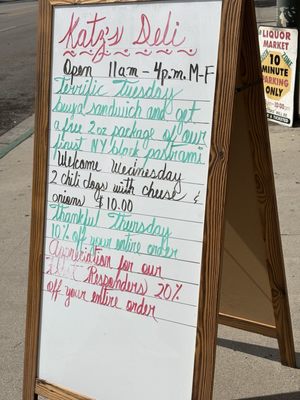 Katz's Deli
Open 11am - 4p.m. M-F
Terrific Tuesday
buy a sandwich and get
a free 2oz package of our
finest NY black pastrami
Welcome Wednesday
2 chili dogs with cheese &
onions $10.00
Thankful Thursday
10% off your entire order
Appreciation for our
Responders 20%
off your entire order
LIQUOR
MARKET
10
MINUTE
PARKING
ONLY